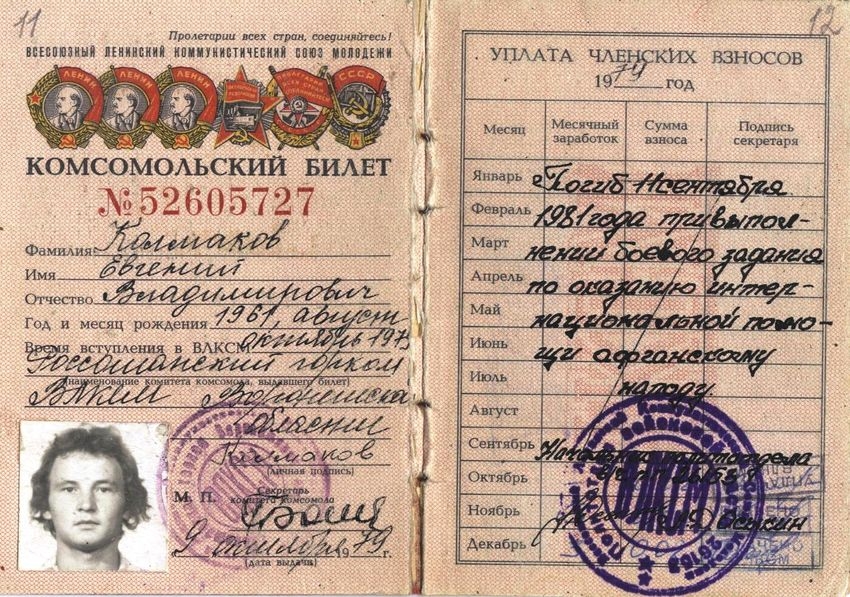 11
Пролетарии всех стран, соединяйтесь!
ВСЕСОЮЗНЫЙ ЛЕНИНСКИЙ КОММУНИСТИЧЕСКИЙ СОЮЗ МОЛОДЕЖИ
ЛЕНИН ЛЕНИН ЛЕНИН СССР
КОМСОМОЛЬСКИЙ БИЛЕТ
№ 52605727
Фамилия Колмаков
Имя Евгений
Отчество Владимирович
Год и месяц рождения 1961, август
Время вступления в ВЛКСМ октябрь 1975
Россошанский горком
(наименование комитета комсомола, выдавшего билет)
ВЛКСМ Воронежской
области
Колмаков
(личная подпись)
М. П. Секретарь
комитета комсомола
9 октября 1979 г.
(дата выдачи)
12
УПЛАТА ЧЛЕНСКИХ ВЗНОСОВ
1979 год
Месяц Месячный заработок Сумма взноса Подпись секретаря
Январь Погиб 11 сентября
Февраль 1981 года при выпол-
Март нении боевого задания
Апрель по оказанию интер-
Май национальной помо-
Июнь щи афганскому
Июль народу
Август
Сентябрь Начальник политотдела
Октябрь
Ноябрь
Декабрь
ВЛКСМ